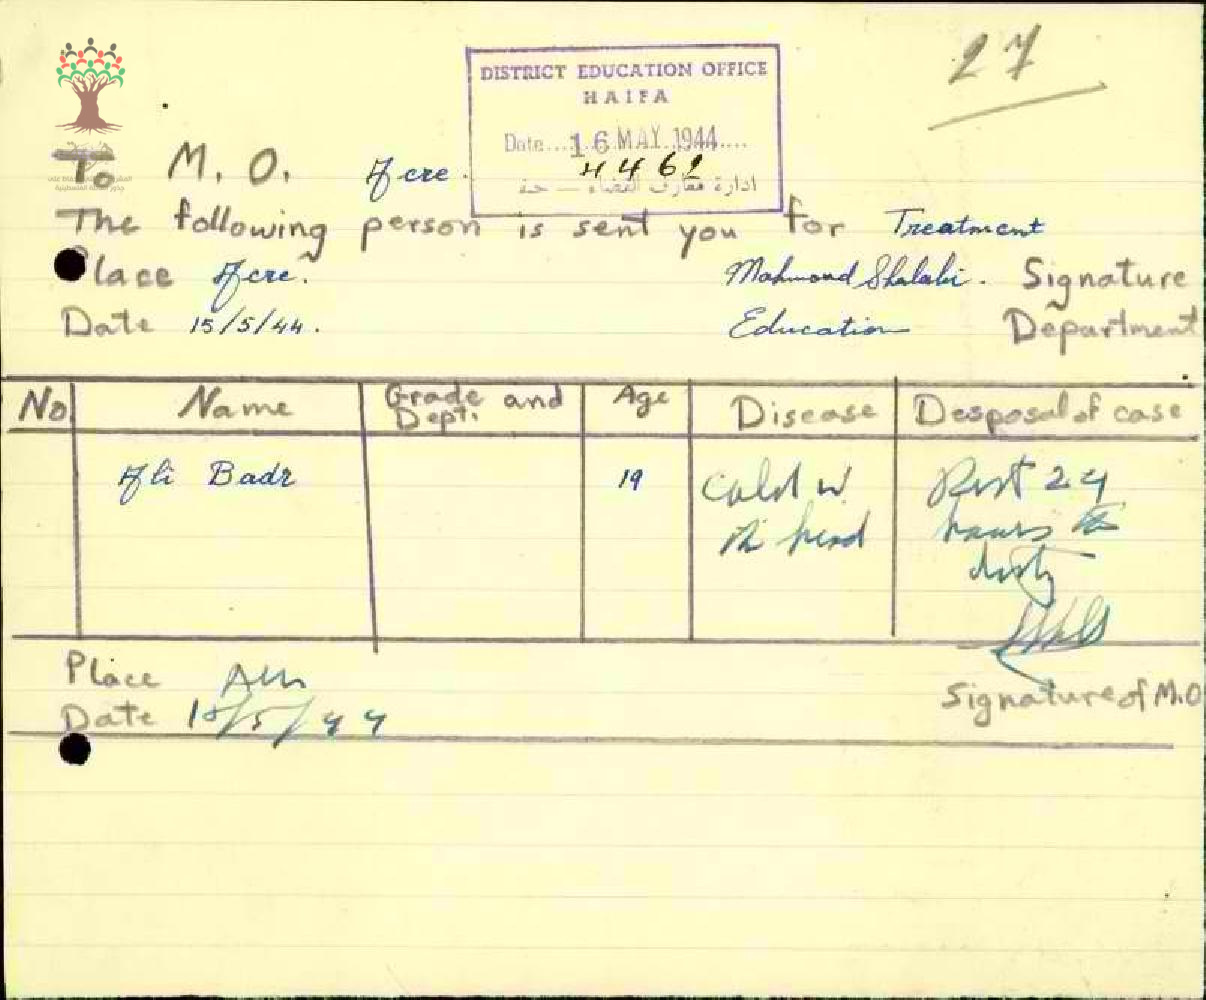 27
DISTRICT EDUCATION OFFICE
HAIFA
Date....16 MAY 1944....
4462
ادارة معارف القضاء —
To M. O. Acre.
The following person is sent you for Treatment
Place Acre. Mahmoud Shalabi. Signature
Date 15/5/44. Education Department
No Name Grade and Dept: Age Disease Desposal of case
Ali Badr 19 Cold in Rest 24
the head hours to
duty
Place Acre
Signature of M.O
Date 15/5/44